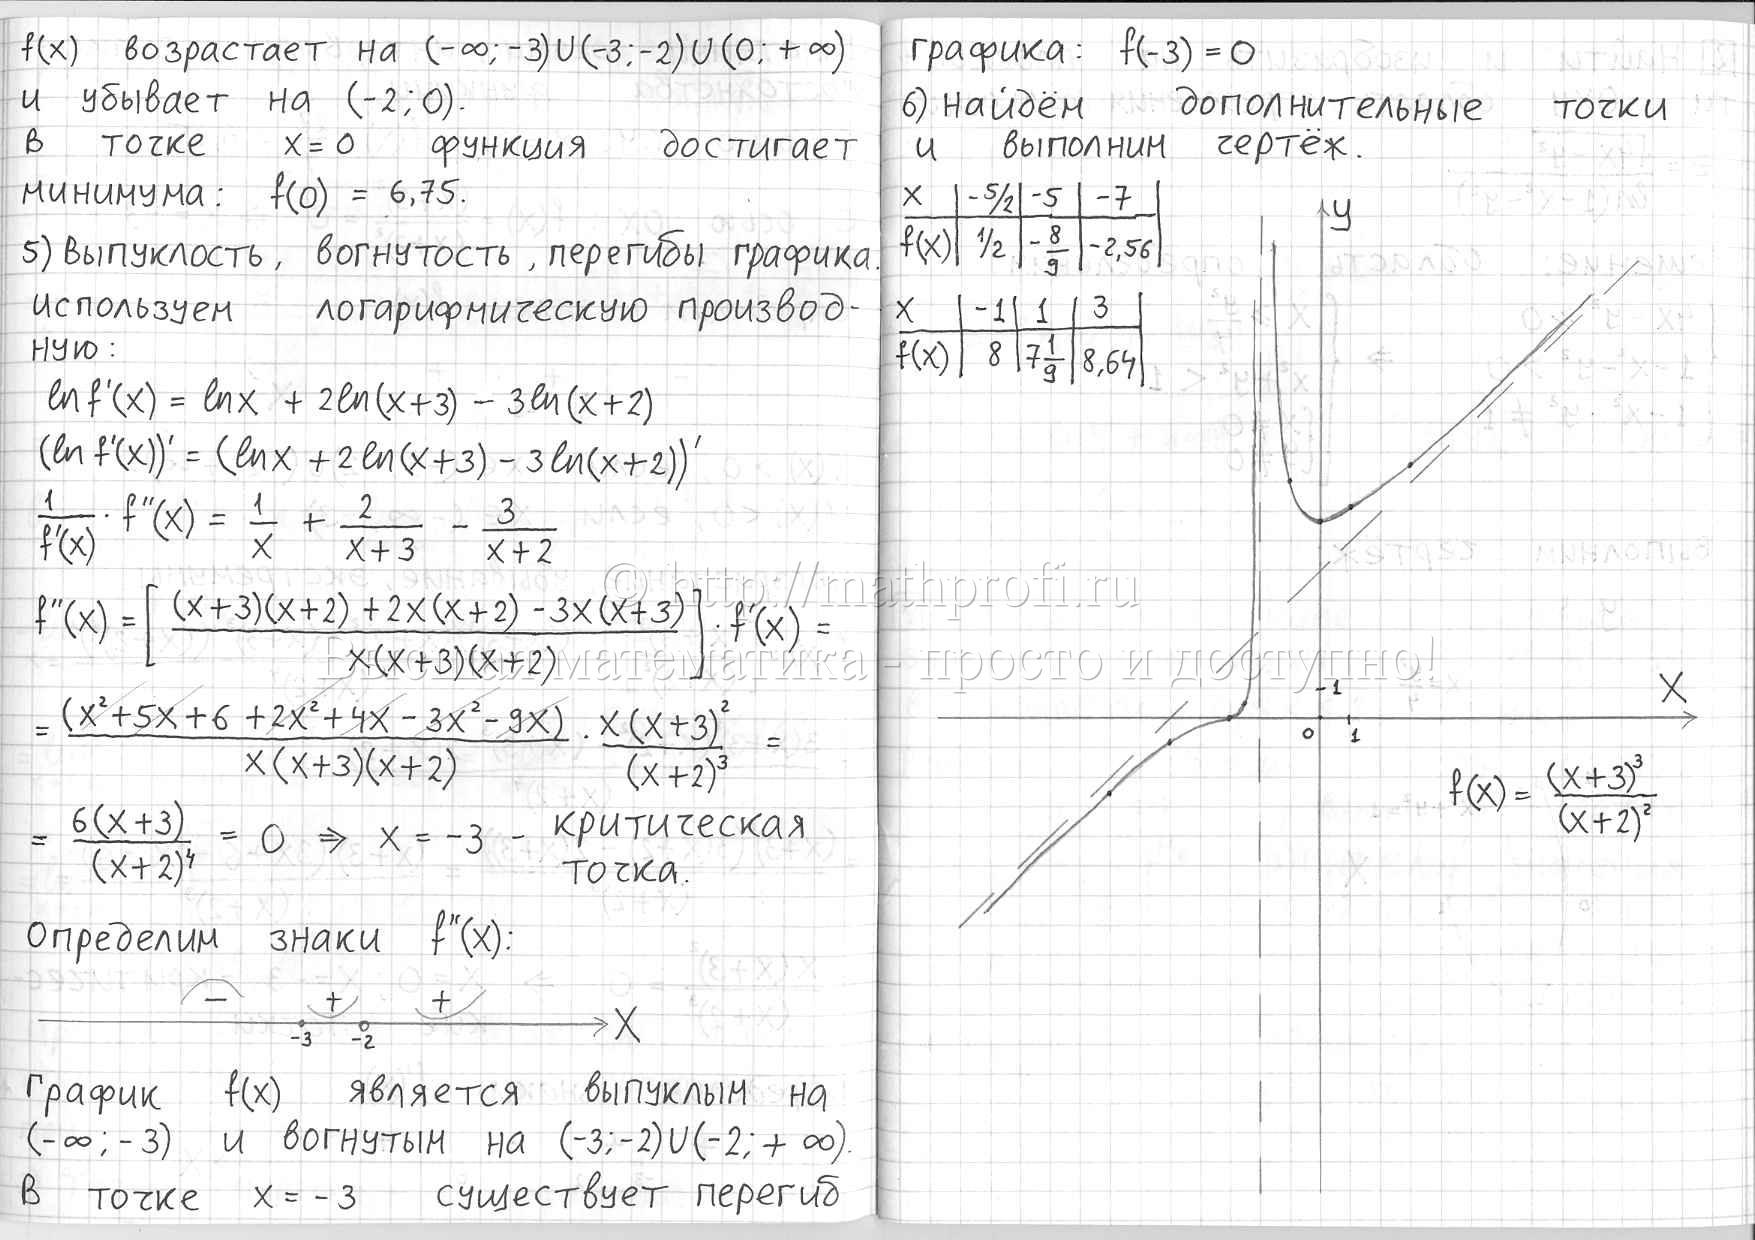 f(x) возрастает на (-∞;-3)∪(-3;-2)∪(0;+∞)
и убывает на (-2;0).
В точке x=0 функция достигает
минимума: f(0) = 6,75.
5) Выпуклость, вогнутость, перегибы графика.
используем логарифмическую производ-
ную:
ln f'(x) = ln x + 2ln(x+3) - 3ln(x+2)
(ln f'(x))' = (ln x + 2ln(x+3) - 3ln(x+2))'
1/f'(x) · f''(x) = 1/x + 2/(x+3) - 3/(x+2)
f''(x) = [((x+3)(x+2) + 2x(x+2) - 3x(x+3))/(x(x+3)(x+2))] · f'(x) =
= (x²+5x+6+2x²+4x-3x²-9x)/(x(x+3)(x+2)) · x(x+3)²/(x+2)³ =
= 6(x+3)/(x+2)⁴ = 0 ⇒ x = -3 - критическая
точка.
Определим знаки f''(x):
- + +
-3 -2 X
График f(x) является выпуклым на
(-∞;-3) и вогнутым на (-3;-2)∪(-2;+∞).
В точке x = -3 существует перегиб
графика: f(-3) = 0
6) Найдём дополнительные точки
и выполним чертёж.
x | -5/2 | -5 | -7
f(x) | 1/2 | -8/9 | -2,56
x | -1 | 1 | 3
f(x) | 8 | 7 1/9 | 8,64
y
1
X
0 1
f(x) = (x+3)³/(x+2)²
© http://mathprofi.ru
Высшая математика - просто и доступно!